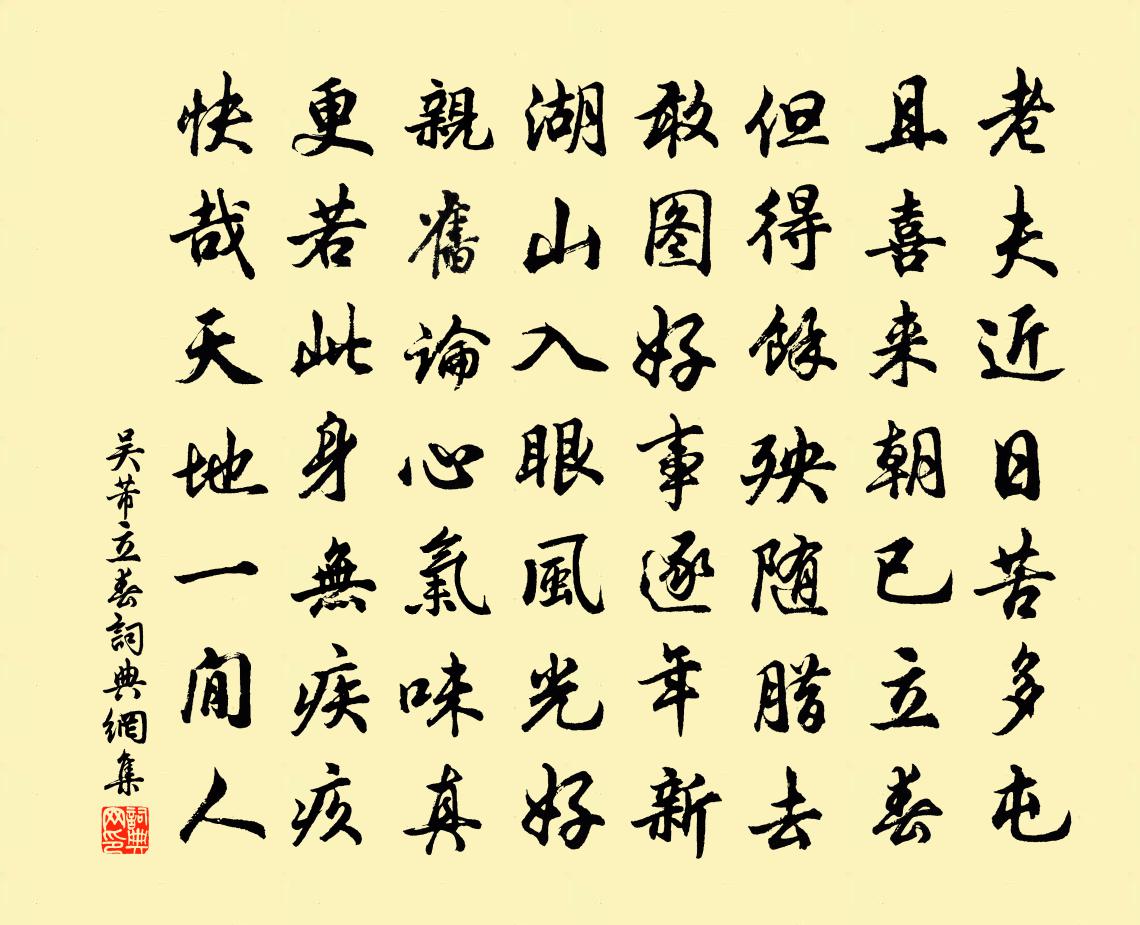 老夫近日苦多屯
且喜来朝已立春
但得餘殃随腊去
敢图好事逐年新
湖山入眼風光好
親舊論心氣味真
更若此身無疾疚
快哉天地一閒人
吴芾立春詞典網集
詞典网印